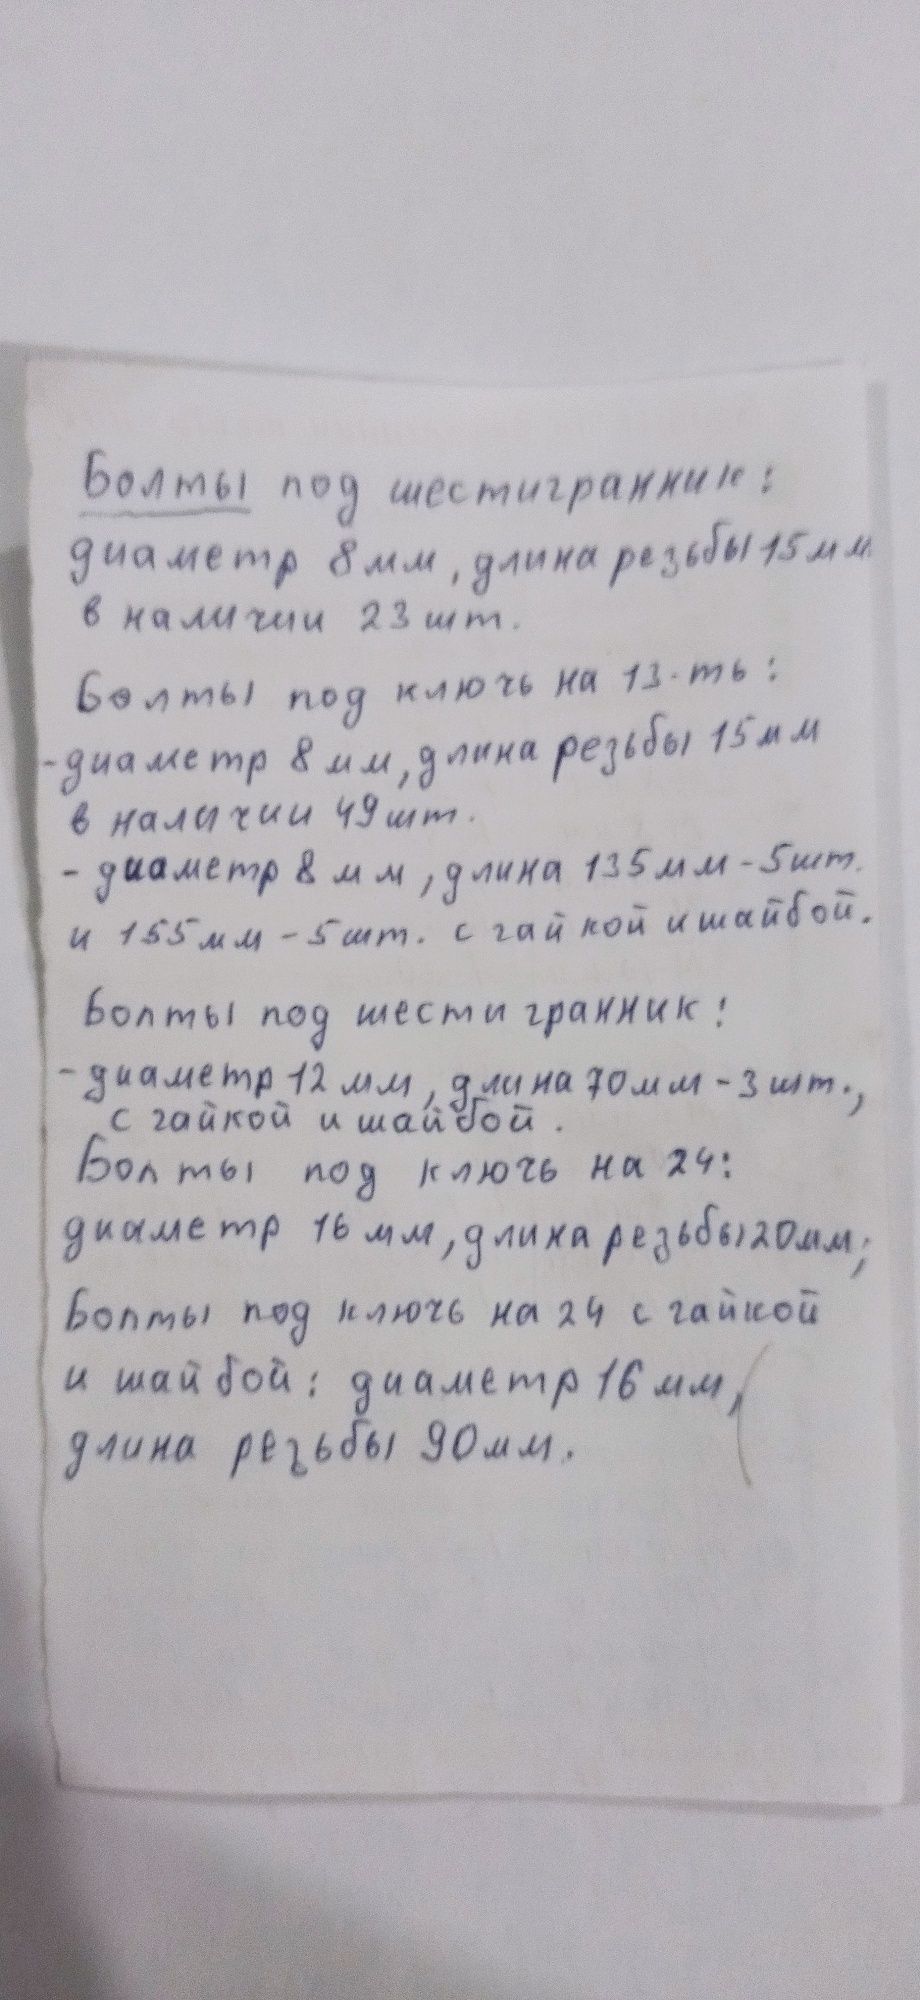 Болты под шестигранник:
диаметр 8мм, длина резьбы 15мм
в наличии 23шт.
Болты под ключь на 13-ть:
-диаметр 8мм, длина резьбы 15мм
в наличии 49шт.
- диаметр 8мм, длина 135мм-5шт.
и 155мм-5шт. с гайкой и шайбой.
Болты под шестигранник:
-диаметр 12мм, длина 70мм-3шт.,
с гайкой и шайбой.
Болты под ключь на 24:
диаметр 16мм, длина резьбы 20мм;
Болты под ключь на 24 с гайкой
и шайбой: диаметр 16мм,
длина резьбы 90мм.